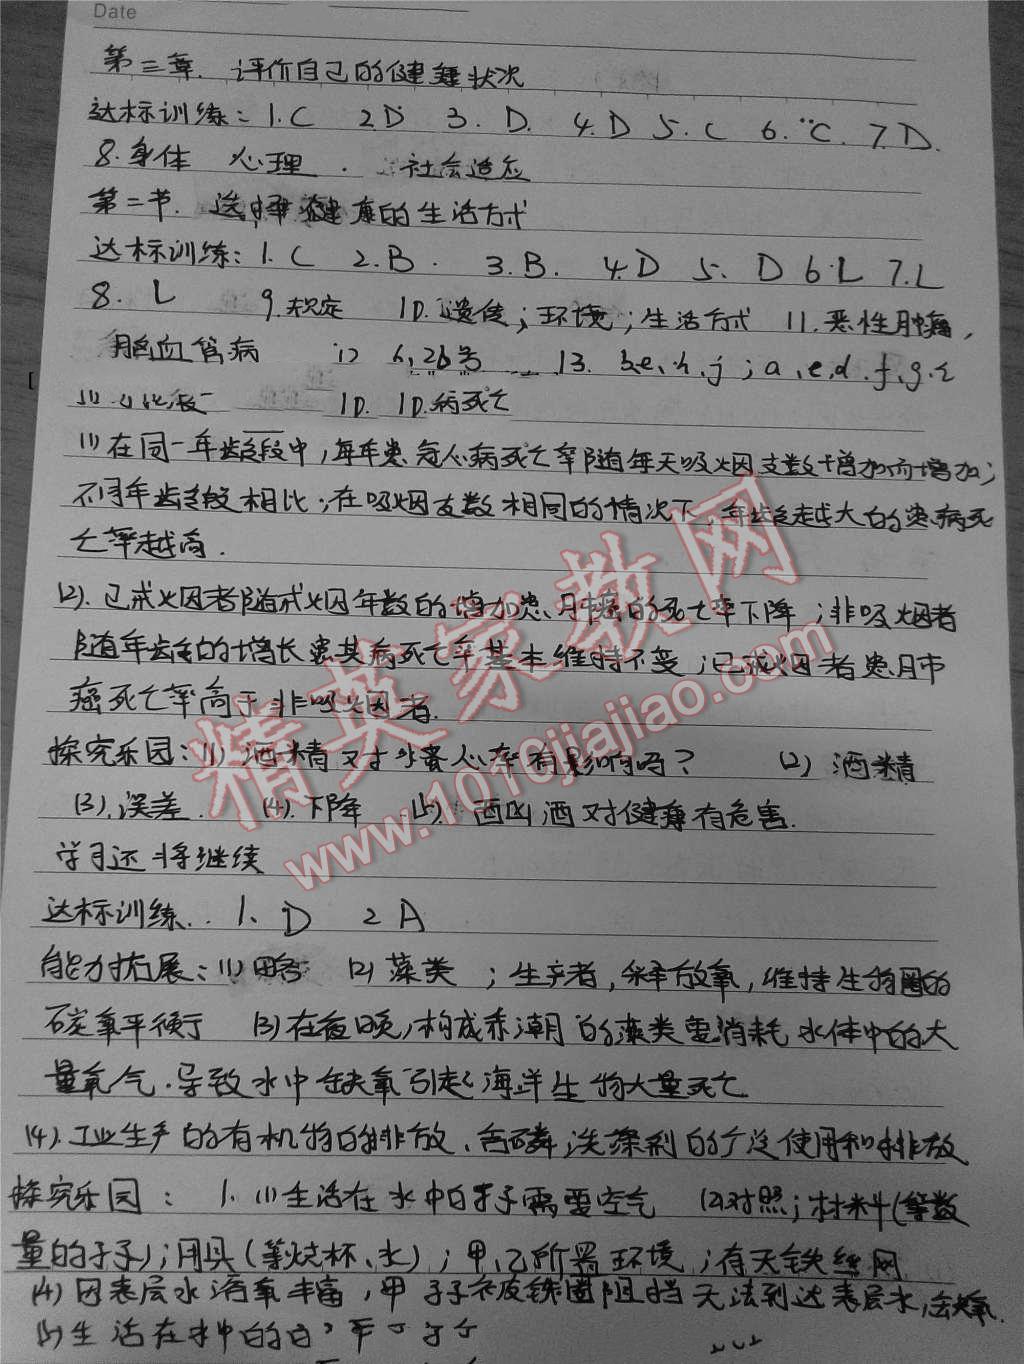 Date
第三章. 评价自己的健康状况
达标训练: 1.C 2.D 3. D. 4.D 5.C 6.C. 7.D.
8.身体 心理 . 社会适应
第二节. 选择健康的生活方式
达标训练: 1.C 2.B. 3.B. 4.D 5. D 6.C 7.C
8. C 9.规定 10.遗传;环境;生活方式 11.恶性肿瘤,
脑血管病 12 6,26号 13.
10. 10.病死亡
(1)在同一年龄段中,每年患冠心病死亡率随每天吸烟支数增加而增加;
不同年龄段相比;在吸烟支数相同的情况下,年龄越大的患病死
亡率越高.
(2).已戒烟者随戒烟年数的增加患肺癌的死亡率下降;非吸烟者
随年龄的增长患其病死亡率基本维持不变;已戒烟者患肺
癌死亡率高于非吸烟者.
探究乐园:(1)酒精对水蚤心率有影响吗? (2)酒精
(3).误差. (4).下降 (5).酗酒对健康有危害.
学习还将继续
达标训练.. 1、D 2 A
能力拓展:(1)略 (2)藻类 ;生产者,释放氧,维持生物圈的
碳氧平衡 (3)在夜晚,构成赤潮的藻类要消耗水体中的大
量氧气.导致水中缺氧引起海洋生物大量死亡
(4).工业生产的有机物的排放、含磷洗涤剂的广泛使用和排放
探究乐园: 1.(1)生活在水中的孑孓需要空气 (2)对照;材料(等数
量的孑孓);用具(等烧杯、水);甲、乙所置环境;有无铁丝网
(4)因表层水溶氧丰富,甲孑孓被铁圈阻挡无法到达表层水,缺氧.
(5)生活在水中的
精英家教网
www.1010jiajiao.com